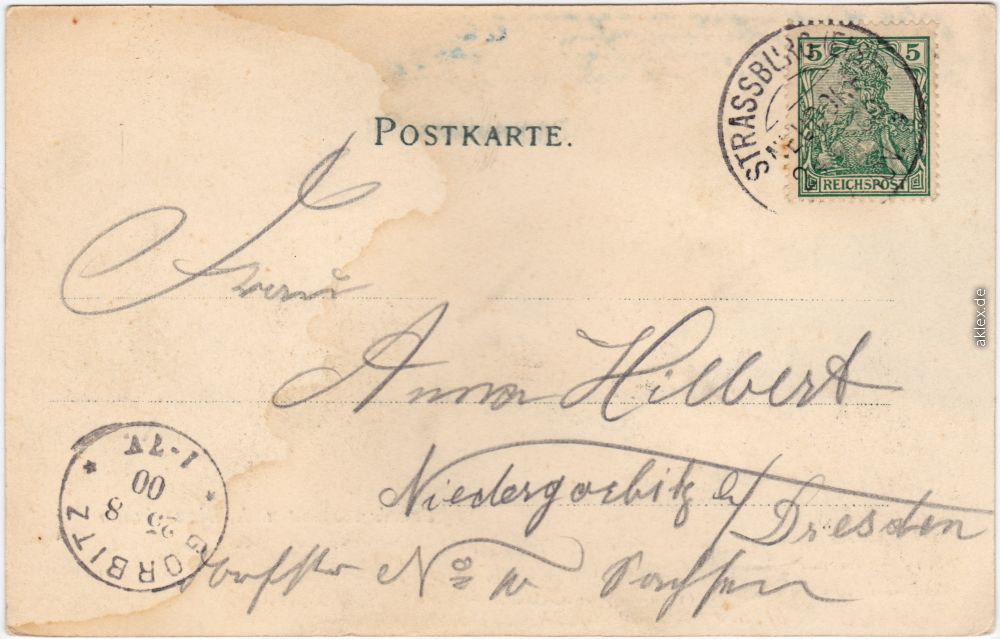 5 5
STRASSBURG (ELS)
REICHSPOST
POSTKARTE.
Frau
Anna Hilbert
Niedergorbitz b/ Dresden
Dorfstr No 10 Sachsen
GORBITZ
25 8
00
1-7V
aklex.de